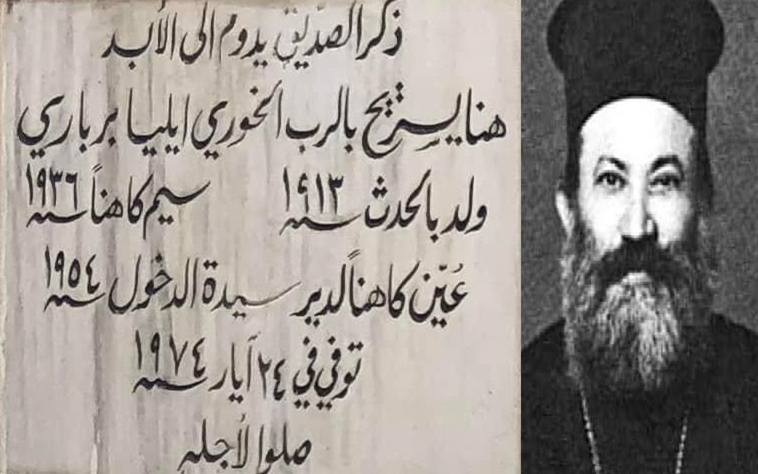 ذكر الصدّيق يدوم الى الأبد
هنا يستريح بالرب الخوري ايليا برباري
ولد بالحدث سنة ١٩١٣ سيم كاهناً سنة ١٩٣٦
عُيّن كاهناً لدير سيدة الدخول سنة ١٩٥٤
توفي في ٢٤ آيار سنة ١٩٧٤
صلوا لأجله